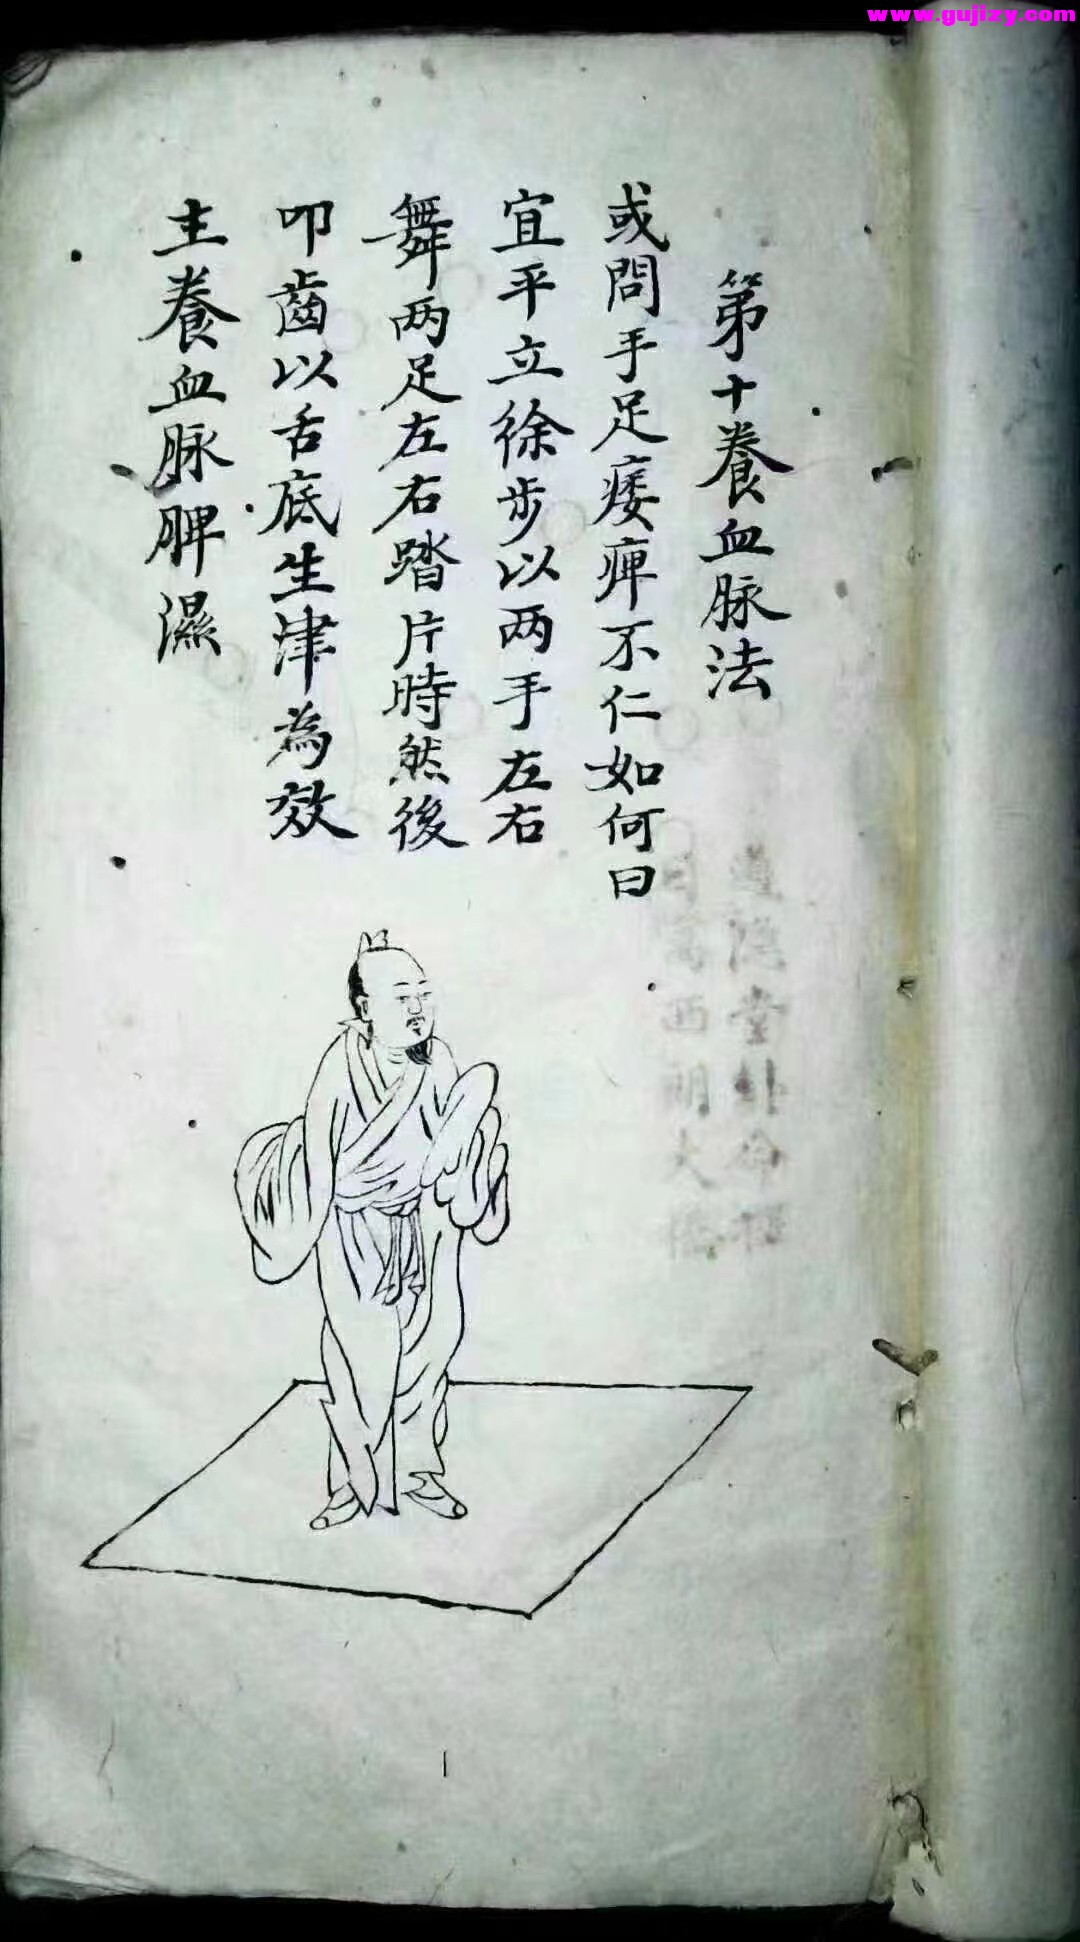 www.gujizy.com
第十養血脉法
或問手足痿痺不仁如何曰
宜平立徐步以两手左右
舞两足左右踏片時然後
叩齒以舌底生津為效
主養血脉脾濕
堂
西朙大